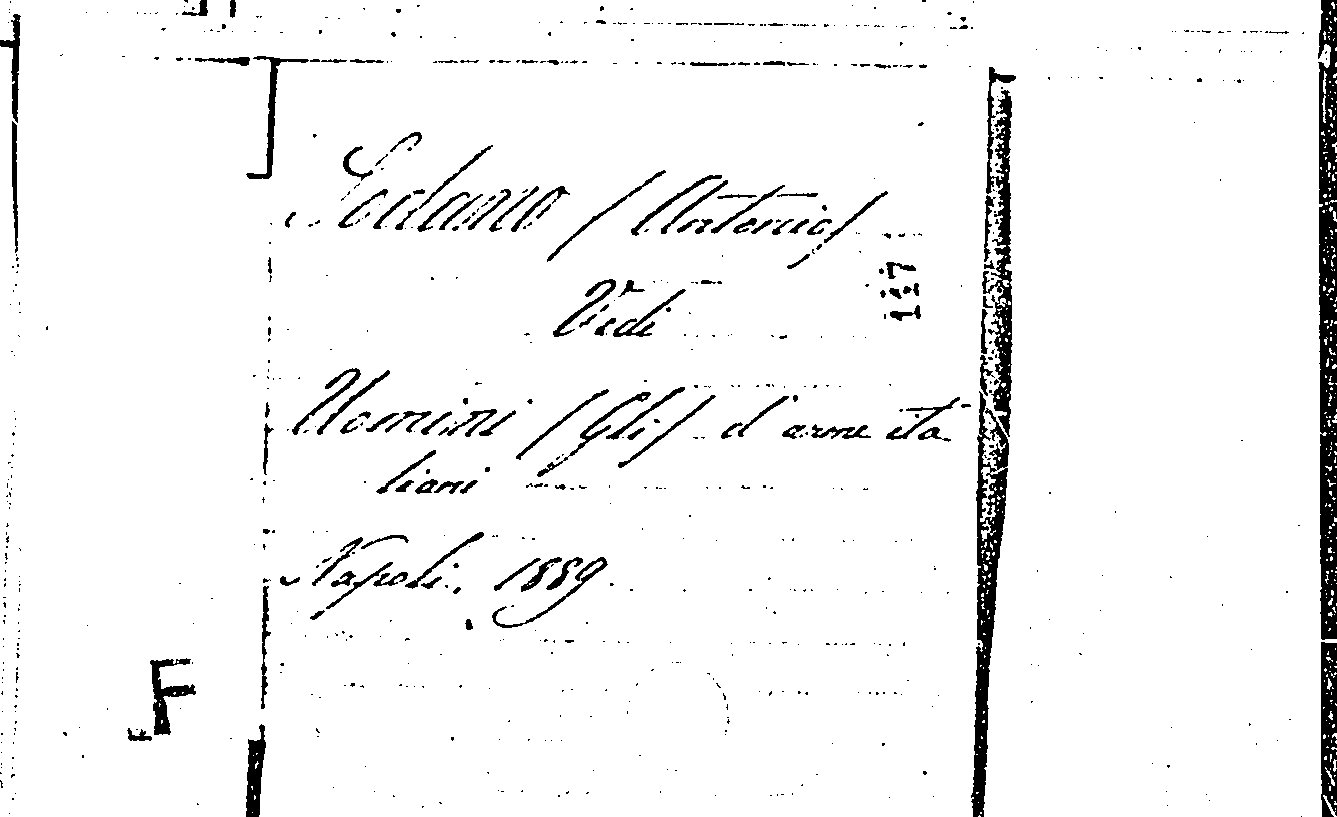 Sodano /Antonio/
117
Vedi
Uomini /Gli/ d'arme ita
liani
Napoli, 1889
F